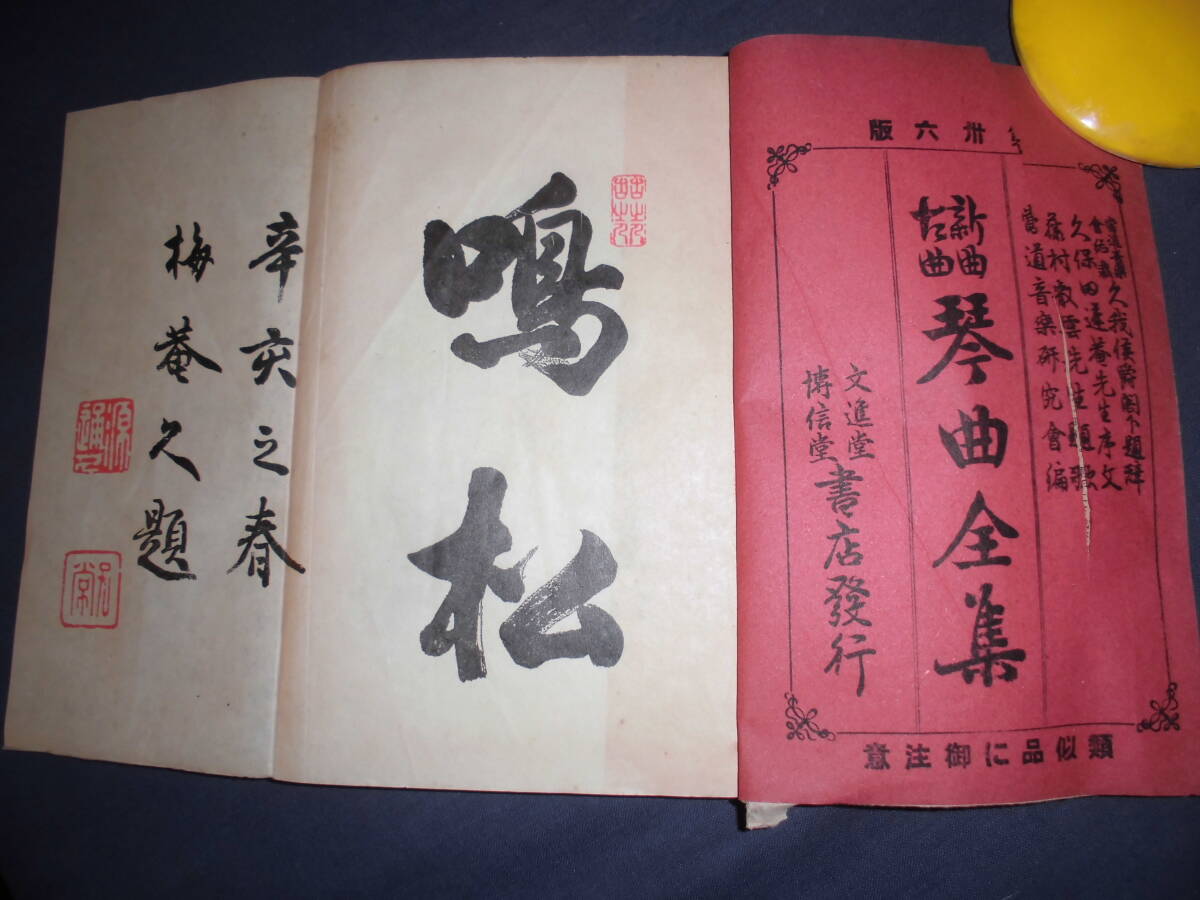 卅六版
久我侯爵閣下題辞
久保田蓬菴先生序文
藤村叡雲先生題歌
當道音樂研究會編
新曲
古曲
琴曲全集
文進堂
博信堂
書店發行
類似品に御注意
鳴松
辛亥之春
梅菴久題
源通久